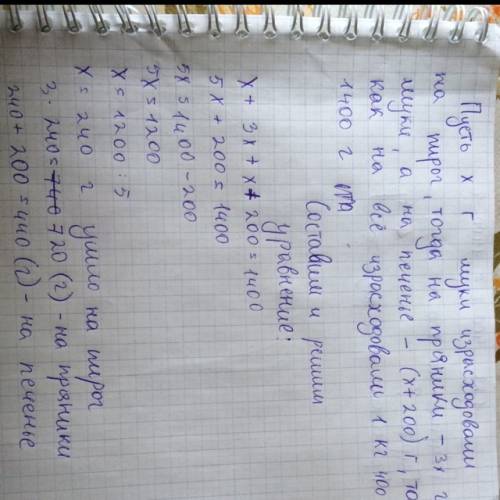 Пусть х г муки израсходовали
на пирог, тогда на пряники - 3х г
муки, а на печенье - (х+200) г, то
как на всё израсходовали 1 кг 400
1400 г
Составим и решим
уравнение:
х + 3х + х + 200 = 1400
5х + 200 = 1400
5х = 1400 - 200
5х = 1200
х = 1200 : 5
х = 240 г ушло на пирог
3 · 240 = 720 (г) - на пряники
240 + 200 = 440 (г) - на печенье